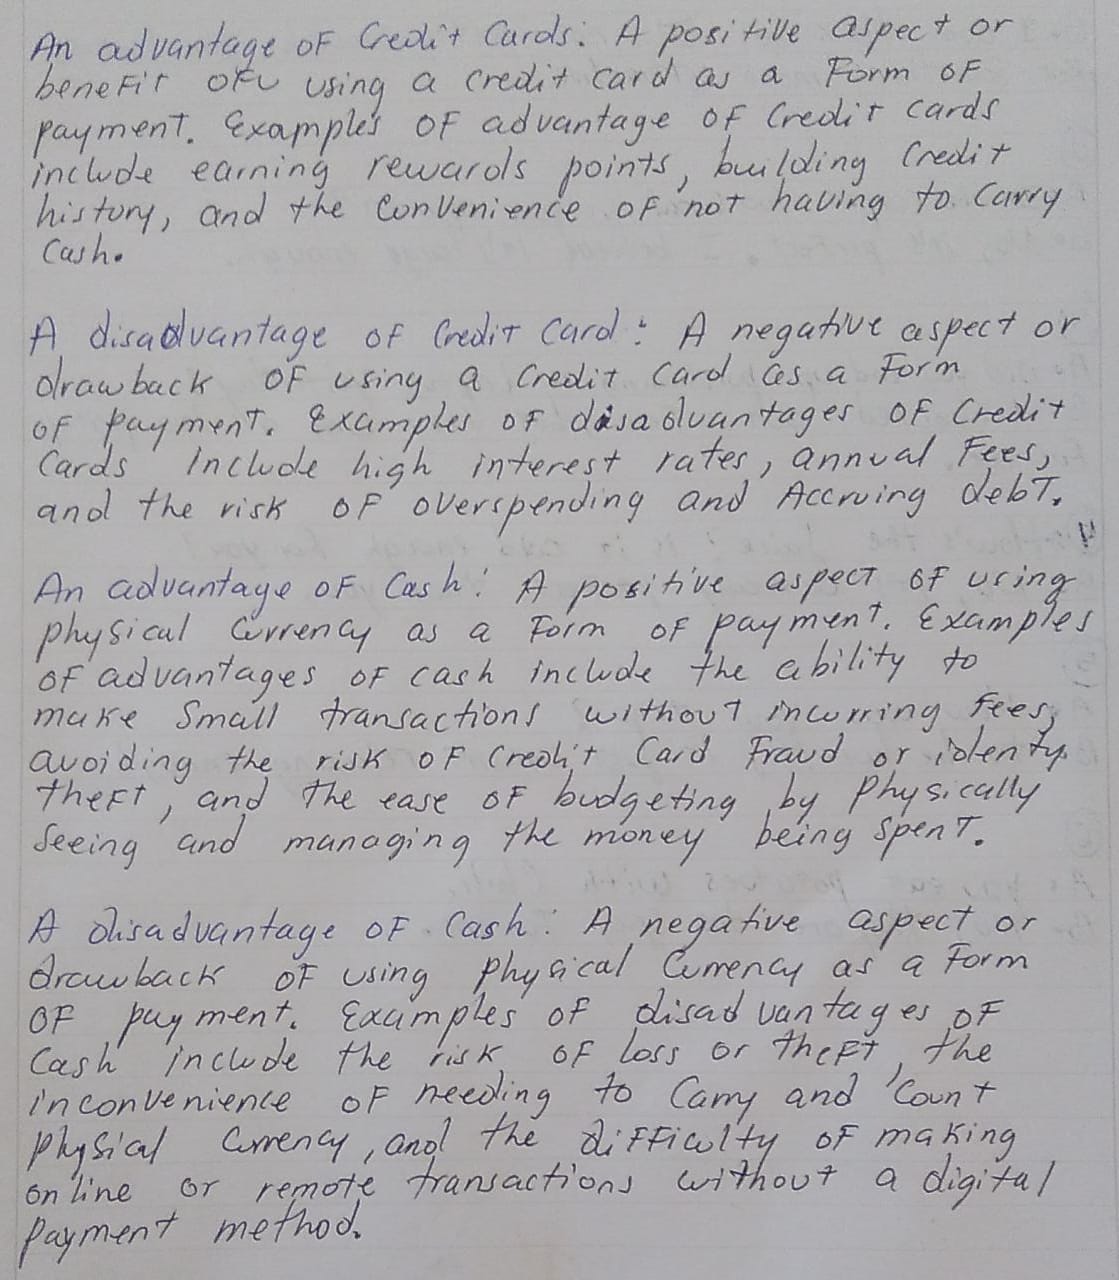 An advantage of Credit Cards: A positive aspect or
benefit of using a credit card as a Form of
payment. Examples of advantage of Credit cards
include earning rewards points, building Credit
history, and the Convenience of not having to Carry
Cash.
A disadvantage of Credit Card: A negative aspect or
drawback of using a Credit Card as a Form
of payment. Examples of disadvantages of Credit
Cards Include high interest rates, annual Fees,
and the risk of overspending and Accruing debt.
An advantage of Cash: A positive aspect of using
physical Currency as a Form of payment. Examples
of advantages of cash include the ability to
make Small transactions without incurring fees,
avoiding the risk of Credit Card Fraud or identy
theft, and the ease of budgeting by Physically
Seeing and managing the money being Spent.
A disadvantage of Cash: A negative aspect or
drawback of using Physical Currency as a Form
of payment. Examples of disadvantages of
Cash include the risk of loss or theft, the
inconvenience of needing to Carry and Count
Physical Currency, and the difficulty of making
online or remote transactions without a digital
Payment method.